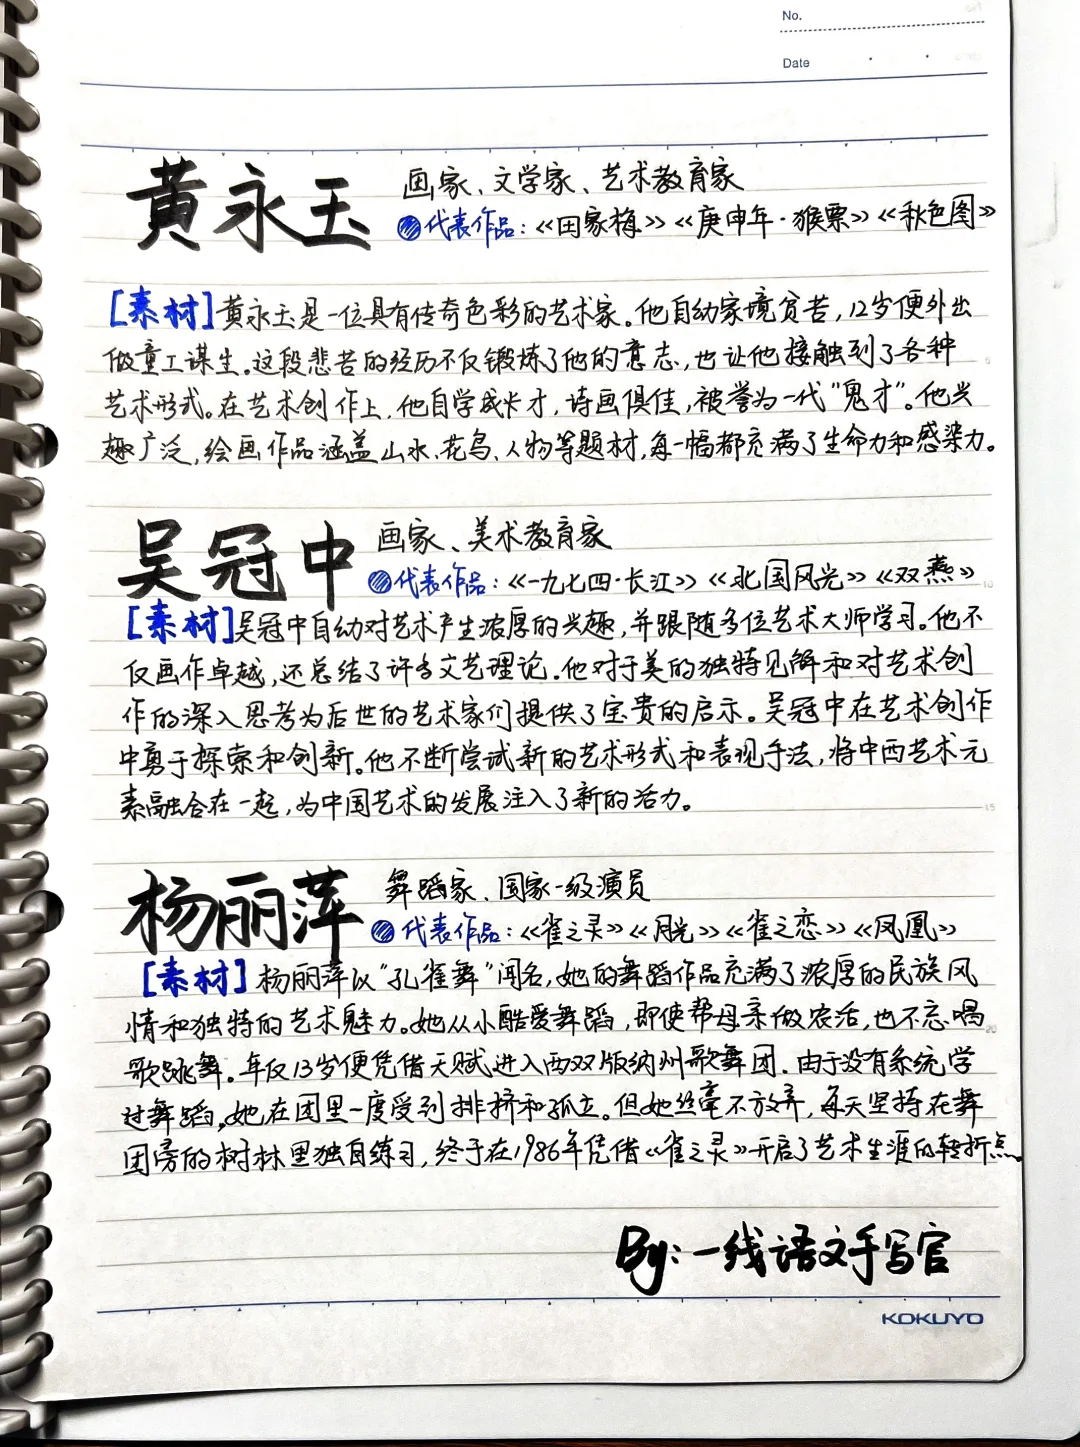 No.
Date
黄永玉 画家、文学家、艺术教育家
代表作品：《田家梅》《庚申年·猴票》《秋色图》
[素材]黄永玉是一位具有传奇色彩的艺术家。他自幼家境贫苦，12岁便外出
做童工谋生。这段悲苦的经历不仅锻炼了他的意志，也让他接触到了各种
艺术形式。在艺术创作上，他自学成才，诗画俱佳，被誉为一代“鬼才”。他兴
趣广泛，绘画作品涵盖山水、花鸟、人物等题材，每一幅都充满了生命力和感染力。
吴冠中 画家、美术教育家
代表作品：《一九七四·长江》《北国风光》《双燕》
[素材]吴冠中自幼对艺术产生浓厚的兴趣，并跟随多位艺术大师学习。他不
仅画作卓越，还总结了许多文艺理论。他对于美的独特见解和对艺术创
作的深入思考为后世的艺术家们提供了宝贵的启示。吴冠中在艺术创作
中勇于探索和创新。他不断尝试新的艺术形式和表现手法，将中西艺术元
素融合在一起，为中国艺术的发展注入了新的活力。
杨丽萍 舞蹈家、国家一级演员
代表作品：《雀之灵》《月光》《雀之恋》《凤凰》
[素材]杨丽萍以“孔雀舞”闻名，她的舞蹈作品充满了浓厚的民族风
情和独特的艺术魅力。她从小酷爱舞蹈，即使帮母亲做农活，也不忘唱
歌跳舞。年仅13岁便凭借天赋进入西双版纳州歌舞团。由于没有系统学
过舞蹈，她在团里一度受到排挤和孤立。但她丝毫不放弃，每天坚持在舞
团旁的树林里独自练习，终于在1986年凭借《雀之灵》开启了艺术生涯的转折点。
By：一线语文手写官
KOKUYO